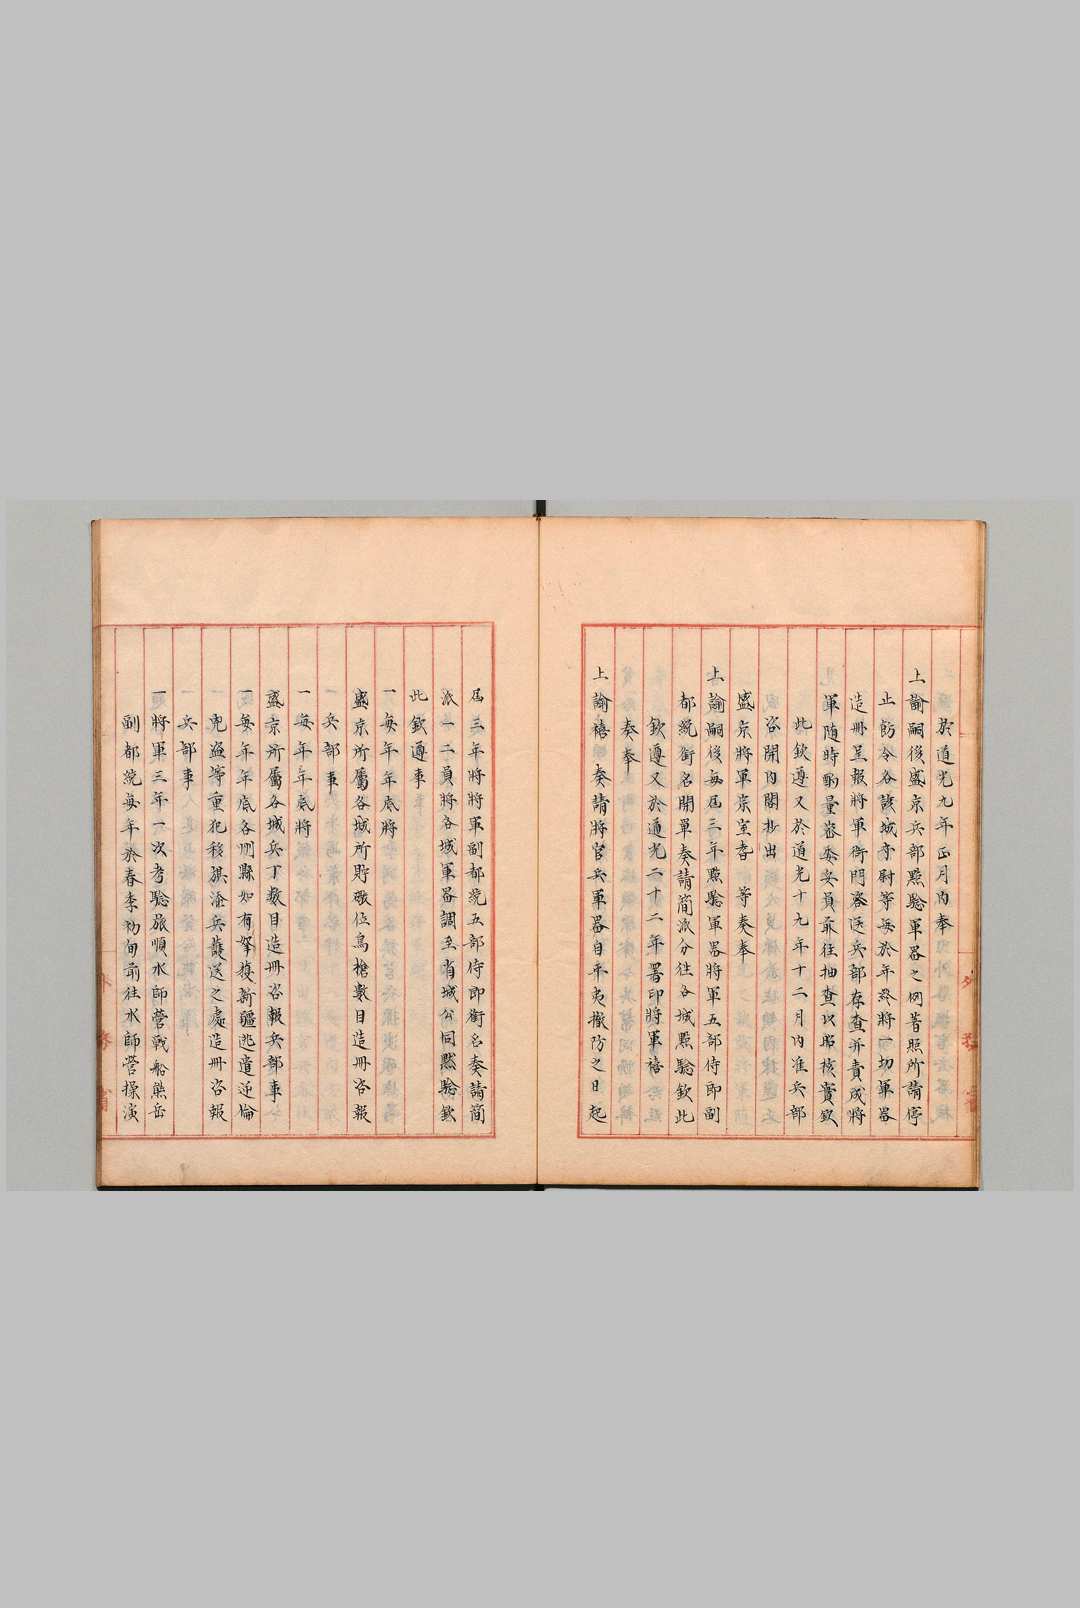 於道光九年正月內奉
上諭嗣後盛京兵部點驗軍器之例著照所請停
止飭令各該城守尉等每於年終將一切軍器
造冊呈報將軍衙門咨送兵部存查并責成將
軍隨時酌量密委妥員前往抽查以昭核實欽
此欽遵又於道光十九年十二月內准兵部
咨開內閣抄出
盛京將軍宗室耆 等奏奉
上諭嗣後每屆三年點驗軍器將軍五部侍郎副
都統銜名開單奏請簡派分往各城點驗欽此
欽遵又於道光二十二年署印將軍禧
奏奉
上諭禧 奏請將官兵軍器自平夷撤防之日起
屆三年將將軍副都統五部侍郎銜名奏請簡
派一二員將各城軍器調至省城公同點驗欽
此欽遵事
一每年年底將
盛京所屬各城所貯礮位鳥槍數目造冊咨報
兵部事
一每年年底將
盛京所屬各城兵丁數目造冊咨報兵部事
一每年年底各州縣如有拏獲新疆逃遣逆倫
兇盜等重犯移旗淦兵護送之處造冊咨報
兵部事
一將軍三年一次考驗旅順水師營戰船熊岳
副都統每年於春季初旬前往水師營操演